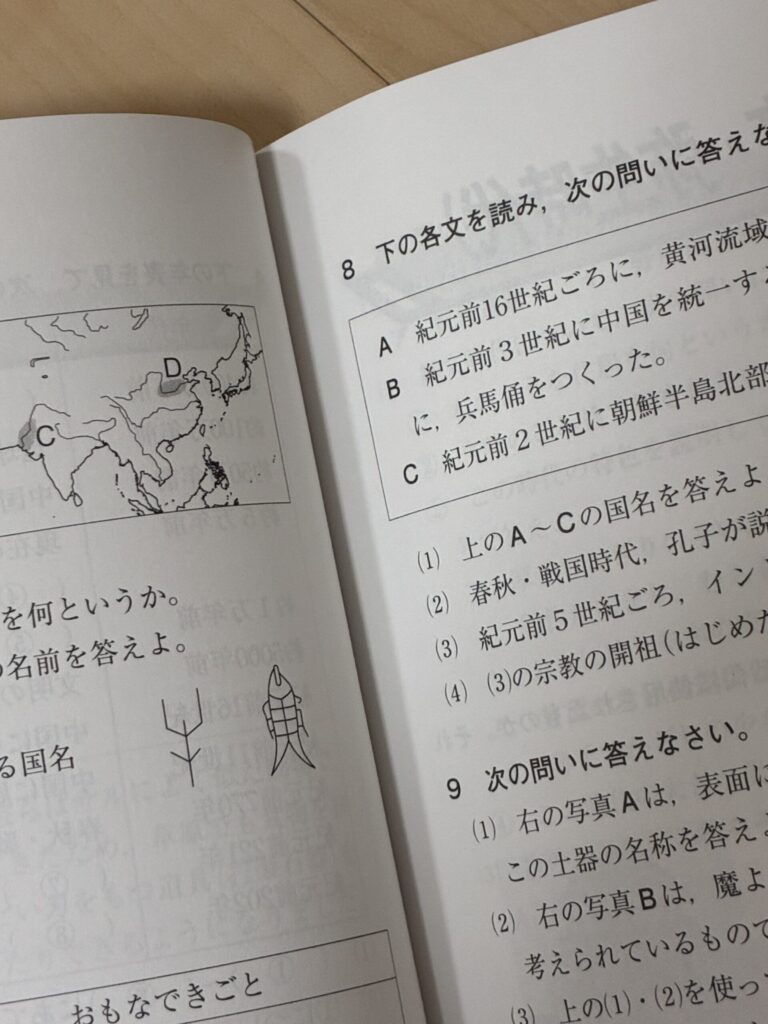 D
C
を何というか。
の名前を答えよ。
る国名
おもなできごと
8 下の各文を読み，次の問いに答えな
A 紀元前16世紀ごろに，黄河流域
B 紀元前3世紀に中国を統一する
に，兵馬俑をつくった。
C 紀元前2世紀に朝鮮半島北部
(1) 上のA～Cの国名を答えよ
(2) 春秋・戦国時代，孔子が説
(3) 紀元前5世紀ごろ，イント
(4) (3)の宗教の開祖(はじめた
9 次の問いに答えなさい。
(1) 右の写真Aは，表面に
この土器の名称を答えよ
(2) 右の写真Bは，魔よ
考えられているもので
(3) 上の(1)・(2)を使っ